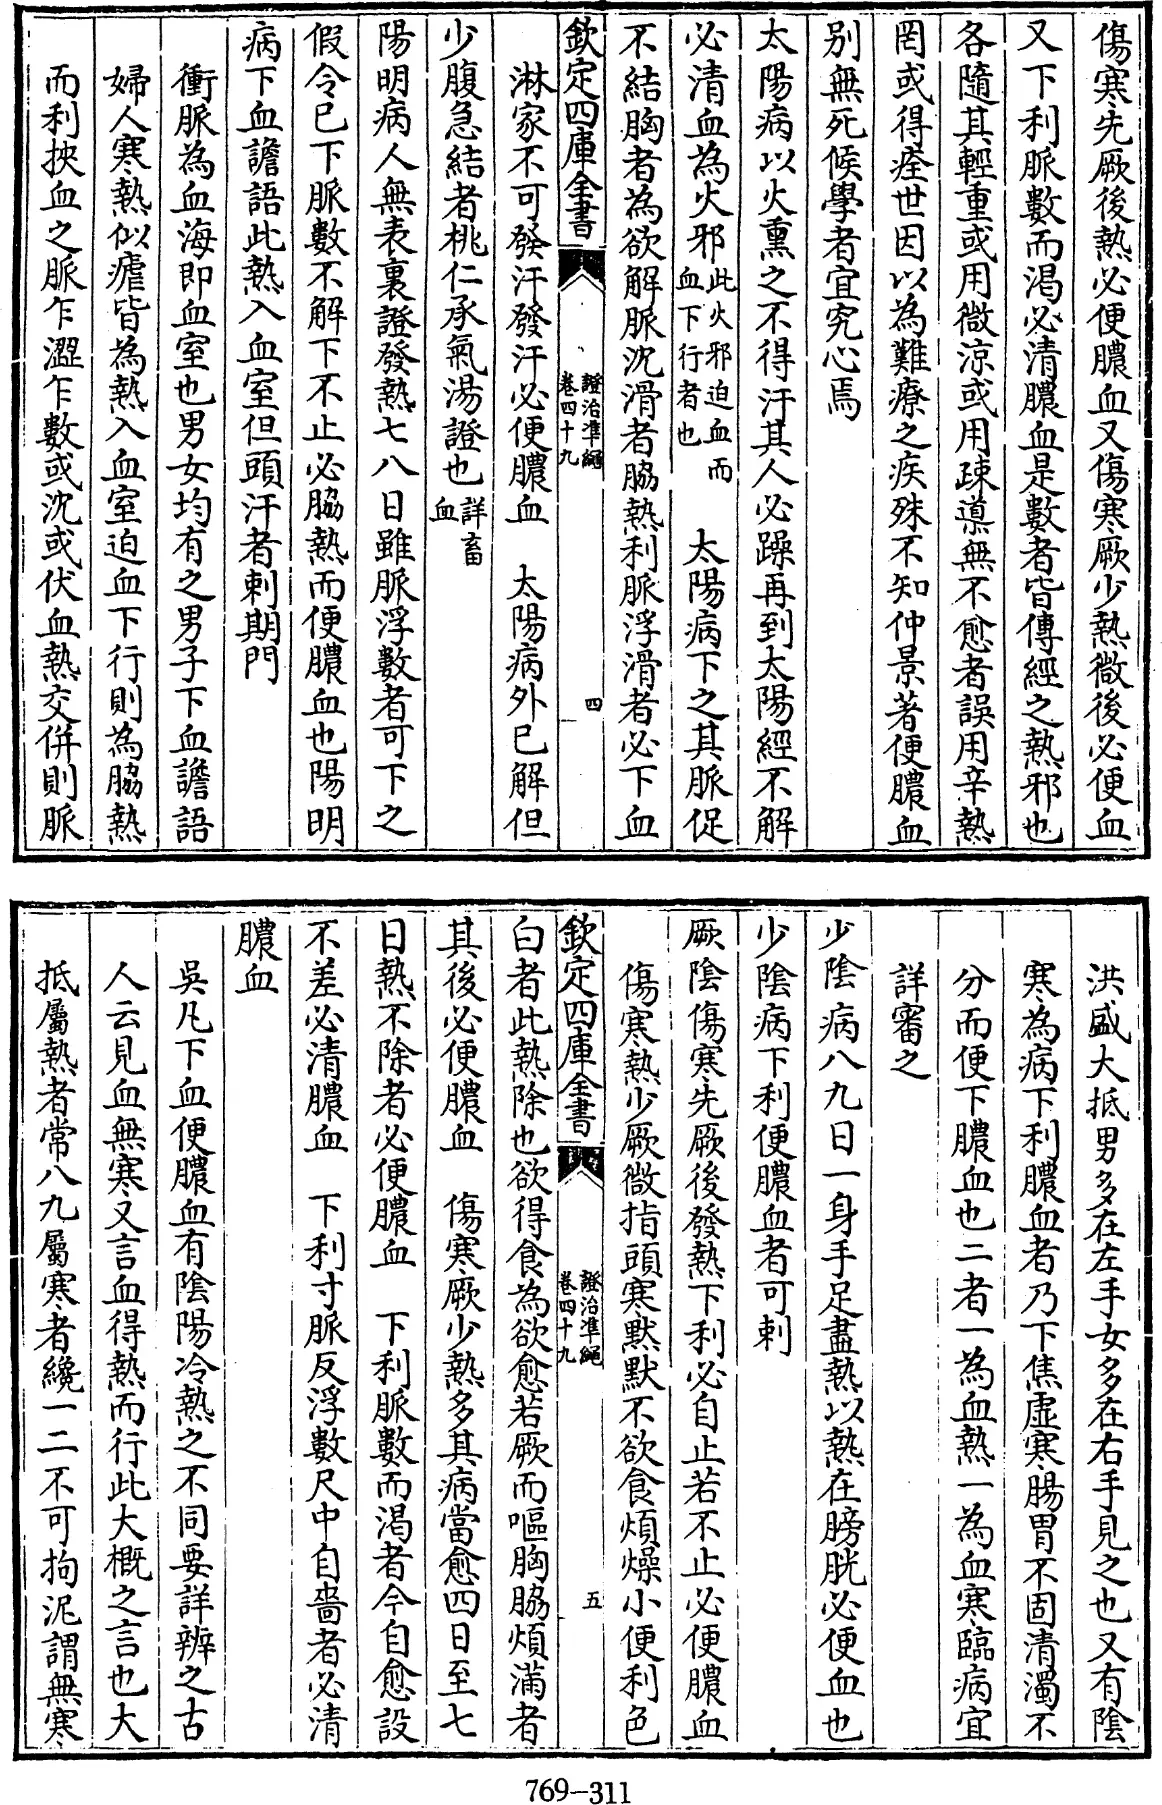 傷寒先厥後熱必便膿血又傷寒厥少熱微後必便血
又下利脈數而渴必清膿血是數者皆傳經之熱邪也
各隨其輕重或用微涼或用疎導無不愈者誤用辛熱
罔或得痊世因以為難療之疾殊不知仲景著便膿血
別無死候學者宜究心焉
太陽病以火熏之不得汗其人必躁再到太陽經不解
必清血為火邪此火邪迫血而血下行者也 太陽病下之其脈促
不結胸者為欲解脈沈滑者脇熱利脈浮滑者必下血
欽定四庫全書
證治準繩
卷四十九
四
淋家不可發汗發汗必便膿血 太陽病外已解但
少腹急結者桃仁承氣湯證也詳畜血
陽明病人無表裏證發熱七八日雖脈浮數者可下之
假令已下脈數不解下不止必脇熱而便膿血也陽明
病下血譫語此熱入血室但頭汗者刺期門
衝脈為血海即血室也男女均有之男子下血譫語
婦人寒熱似瘧皆為熱入血室迫血下行則為脇熱
而利挾血之脈乍澀乍數或沈或伏血熱交併則脈
洪盛大抵男多在左手女多在右手見之也又有陰
寒為病下利膿血者乃下焦虛寒腸胃不固清濁不
分而便下膿血也二者一為血熱一為血寒臨病宜
詳審之
少陰病八九日一身手足盡熱以熱在膀胱必便血也
少陰病下利便膿血者可刺
厥陰傷寒先厥後發熱下利必自止若不止必便膿血
傷寒熱少厥微指頭寒默默不欲食煩燥小便利色
欽定四庫全書
證治準繩
卷四十九
五
白者此熱除也欲得食為欲愈若厥而嘔胸脇煩滿者
其後必便膿血 傷寒厥少熱多其病當愈四日至七
日熱不除者必便膿血 下利脈數而渴者今自愈設
不差必清膿血 下利寸脈反浮數尺中自嗇者必清
膿血
吳凡下血便膿血有陰陽冷熱之不同要詳辨之古
人云見血無寒又言血得熱而行此大概之言也大
抵屬熱者常八九屬寒者纔一二不可拘泥謂無寒
769-311